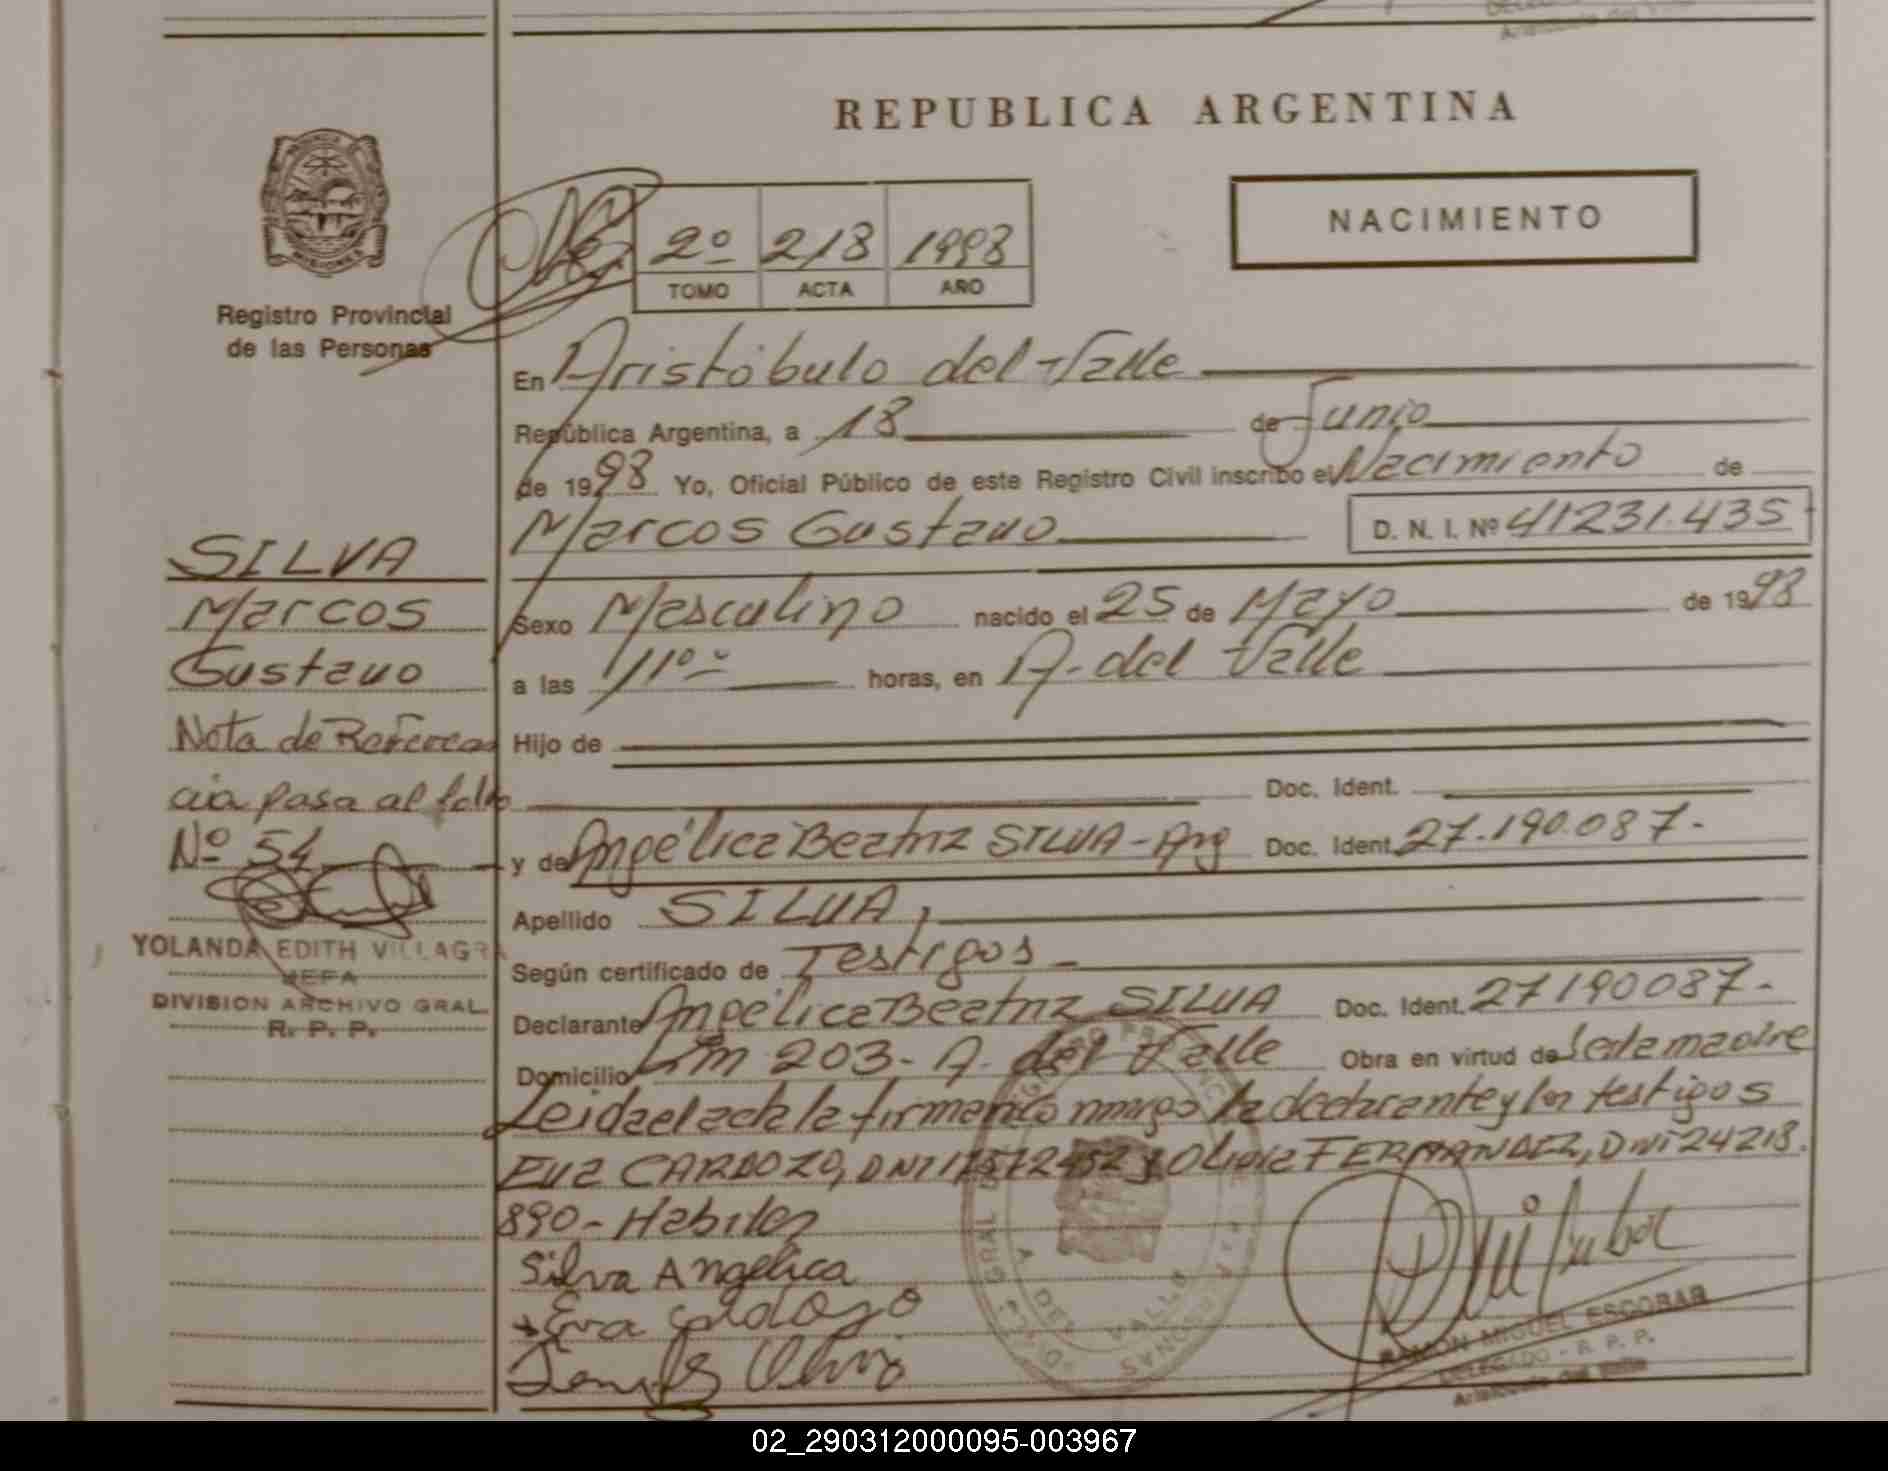 REPUBLICA ARGENTINA
NACIMIENTO
PROVINCIA
MISIONES
Registro Provincial
de las Personas
2º 218 1998
TOMO ACTA AÑO
En Aristóbulo del Valle
República Argentina, a 18 de Junio
de 1998 Yo, Oficial Público de este Registro Civil inscribo el Nacimiento de
Marcos Gustavo D. N. I. Nº 41231.435
Sexo Masculino nacido el 25 de Mayo de 1998
a las 11º horas, en A. del Valle
Hijo de
Doc. Ident.
y de Angélica Beatriz SILVA - Arg Doc. Ident. 27.190.087.-
Apellido SILVA,
Según certificado de Testigos -
Declarante Angélica Beatriz SILVA Doc. Ident. 27190087.-
Domicilio Lm 203 - A. del Valle Obra en virtud de Ser la madre
Leida el acta la firman conmigo la declarante y los testigos
Eva CARDOZO, DNI y Olivia FERNANDEZ, DNI 24218.
890 - Habiles
Silva Angélica
Eva Cardozo
SILVA
Marcos
Gustavo
Nota de Referen
cia pasa al folio
Nº 54
YOLANDA EDITH VILLAGRA
JEFA
DIVISION ARCHIVO GRAL.
R. P. P.
RAMON MIGUEL ESCOBAR
DELEGADO - R. P. P.
Aristóbulo del Valle
02_290312000095-003967